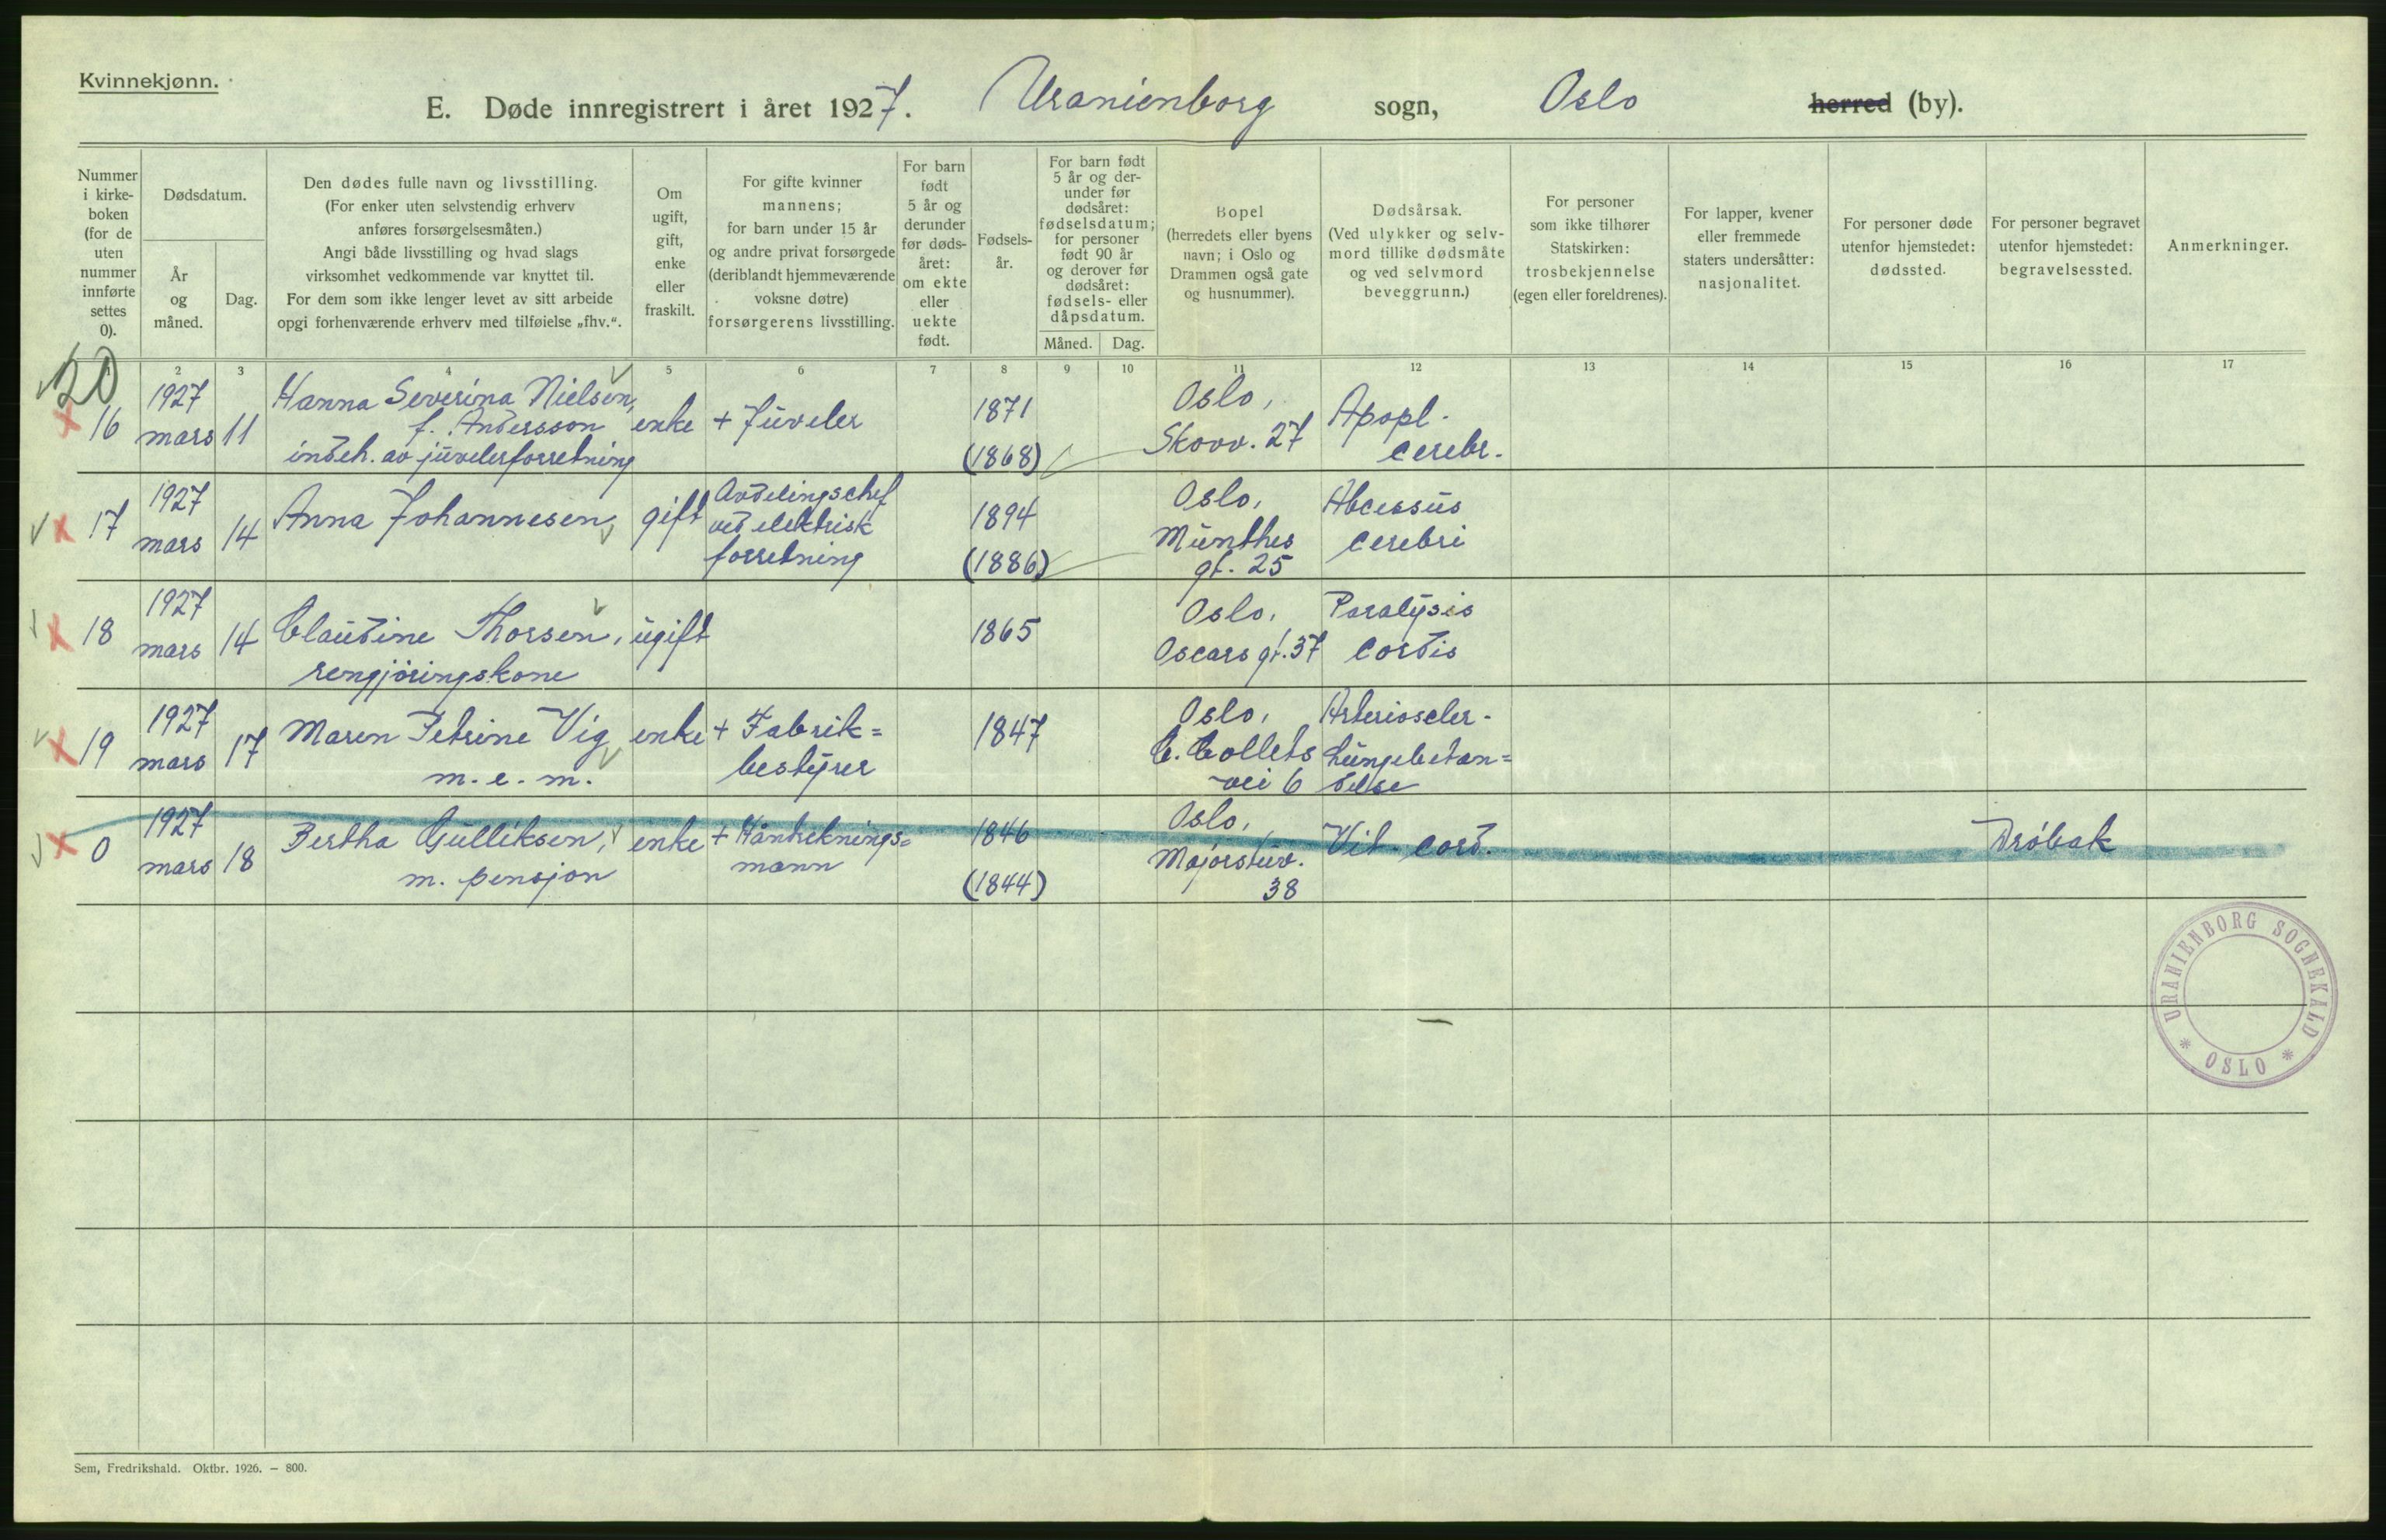 Kvinnekjønn.
E. Døde innregistrert i året 1927. Uranienborg sogn, Oslo herred (by).
Nummer
i kirke-
boken
(for de
uten
nummer
innførte
settes
0).
Dødsdatum.
År
og
måned.
Dag.
Den dødes fulle navn og livsstilling.
(For enker uten selvstendig erhverv
anføres forsørgelsesmåten.)
Angi både livsstilling og hvad slags
virksomhet vedkommende var knyttet til.
For dem som ikke lenger levet av sitt arbeide
opgi forhenværende erhverv med tilføielse „fhv.“.
Om
ugift,
gift,
enke
eller
fraskilt.
For gifte kvinner
mannens;
for barn under 15 år
og andre privat forsørgede
(deriblandt hjemmeværende
voksne døtre)
forsørgerens livsstilling.
For barn
født
5 år og
derunder
før døds-
året:
om ekte
eller
uekte
født.
Fødsels-
år.
For barn født
5 år og der-
under før
dødsåret:
fødselsdatum;
for personer
født 90 år
og derover før
dødsåret:
fødsels- eller
dåpsdatum.
Måned. Dag.
Bopel
(herredets eller byens
navn; i Oslo og
Drammen også gate
og husnummer).
Dødsårsak.
(Ved ulykker og selv-
mord tillike dødsmåte
og ved selvmord
beveggrunn.)
For personer
som ikke tilhører
Statskirken:
trosbekjennelse
(egen eller foreldrenes).
For lapper, kvener
eller fremmede
staters undersåtter:
nasjonalitet.
For personer døde
utenfor hjemstedet:
dødssted.
For personer begravet
utenfor hjemstedet:
begravelsessted.
Anmerkninger.
1 2 3 4 5 6 7 8 9 10 11 12 13 14 15 16 17
20
16
1927
mars
11
Hanna Severina Nielsen,
f. Andersson
indeh. av juvelerforretning
enke
+ Juveler
1871
(1868)
Oslo,
Skovv. 27
Apopl.
cerebr.
17
1927
mars
14
Anna Johannesen,
gift
Avdelingschef
ved elektrisk
forretning
1894
(1886)
Oslo,
Munthes
gt. 25
Abcessus
cerebri
18
1927
mars
14
Claudine Thorsen,
rengjöringskone
ugift
1865
Oslo,
Oscars gt. 37
Paralysis
cordis
19
1927
mars
17
Maren Petrine Vig
m. e. m.
enke
+ Fabrik=
bestyrer
1847
Oslo,
C. Collets
vei 6
Arterioscler-
Lungebetæn=
delse
0
1927
mars
18
Bertha Gulliksen,
m. pensjon
enke
+ Håndteknings=
mann
1846
(1844)
Oslo,
Majorstuv.
38
Vit. cord.
Dröbak
URANIENBORG SOGNEKALD
* OSLO *
Sem, Fredrikshald. Oktbr. 1926. — 800.